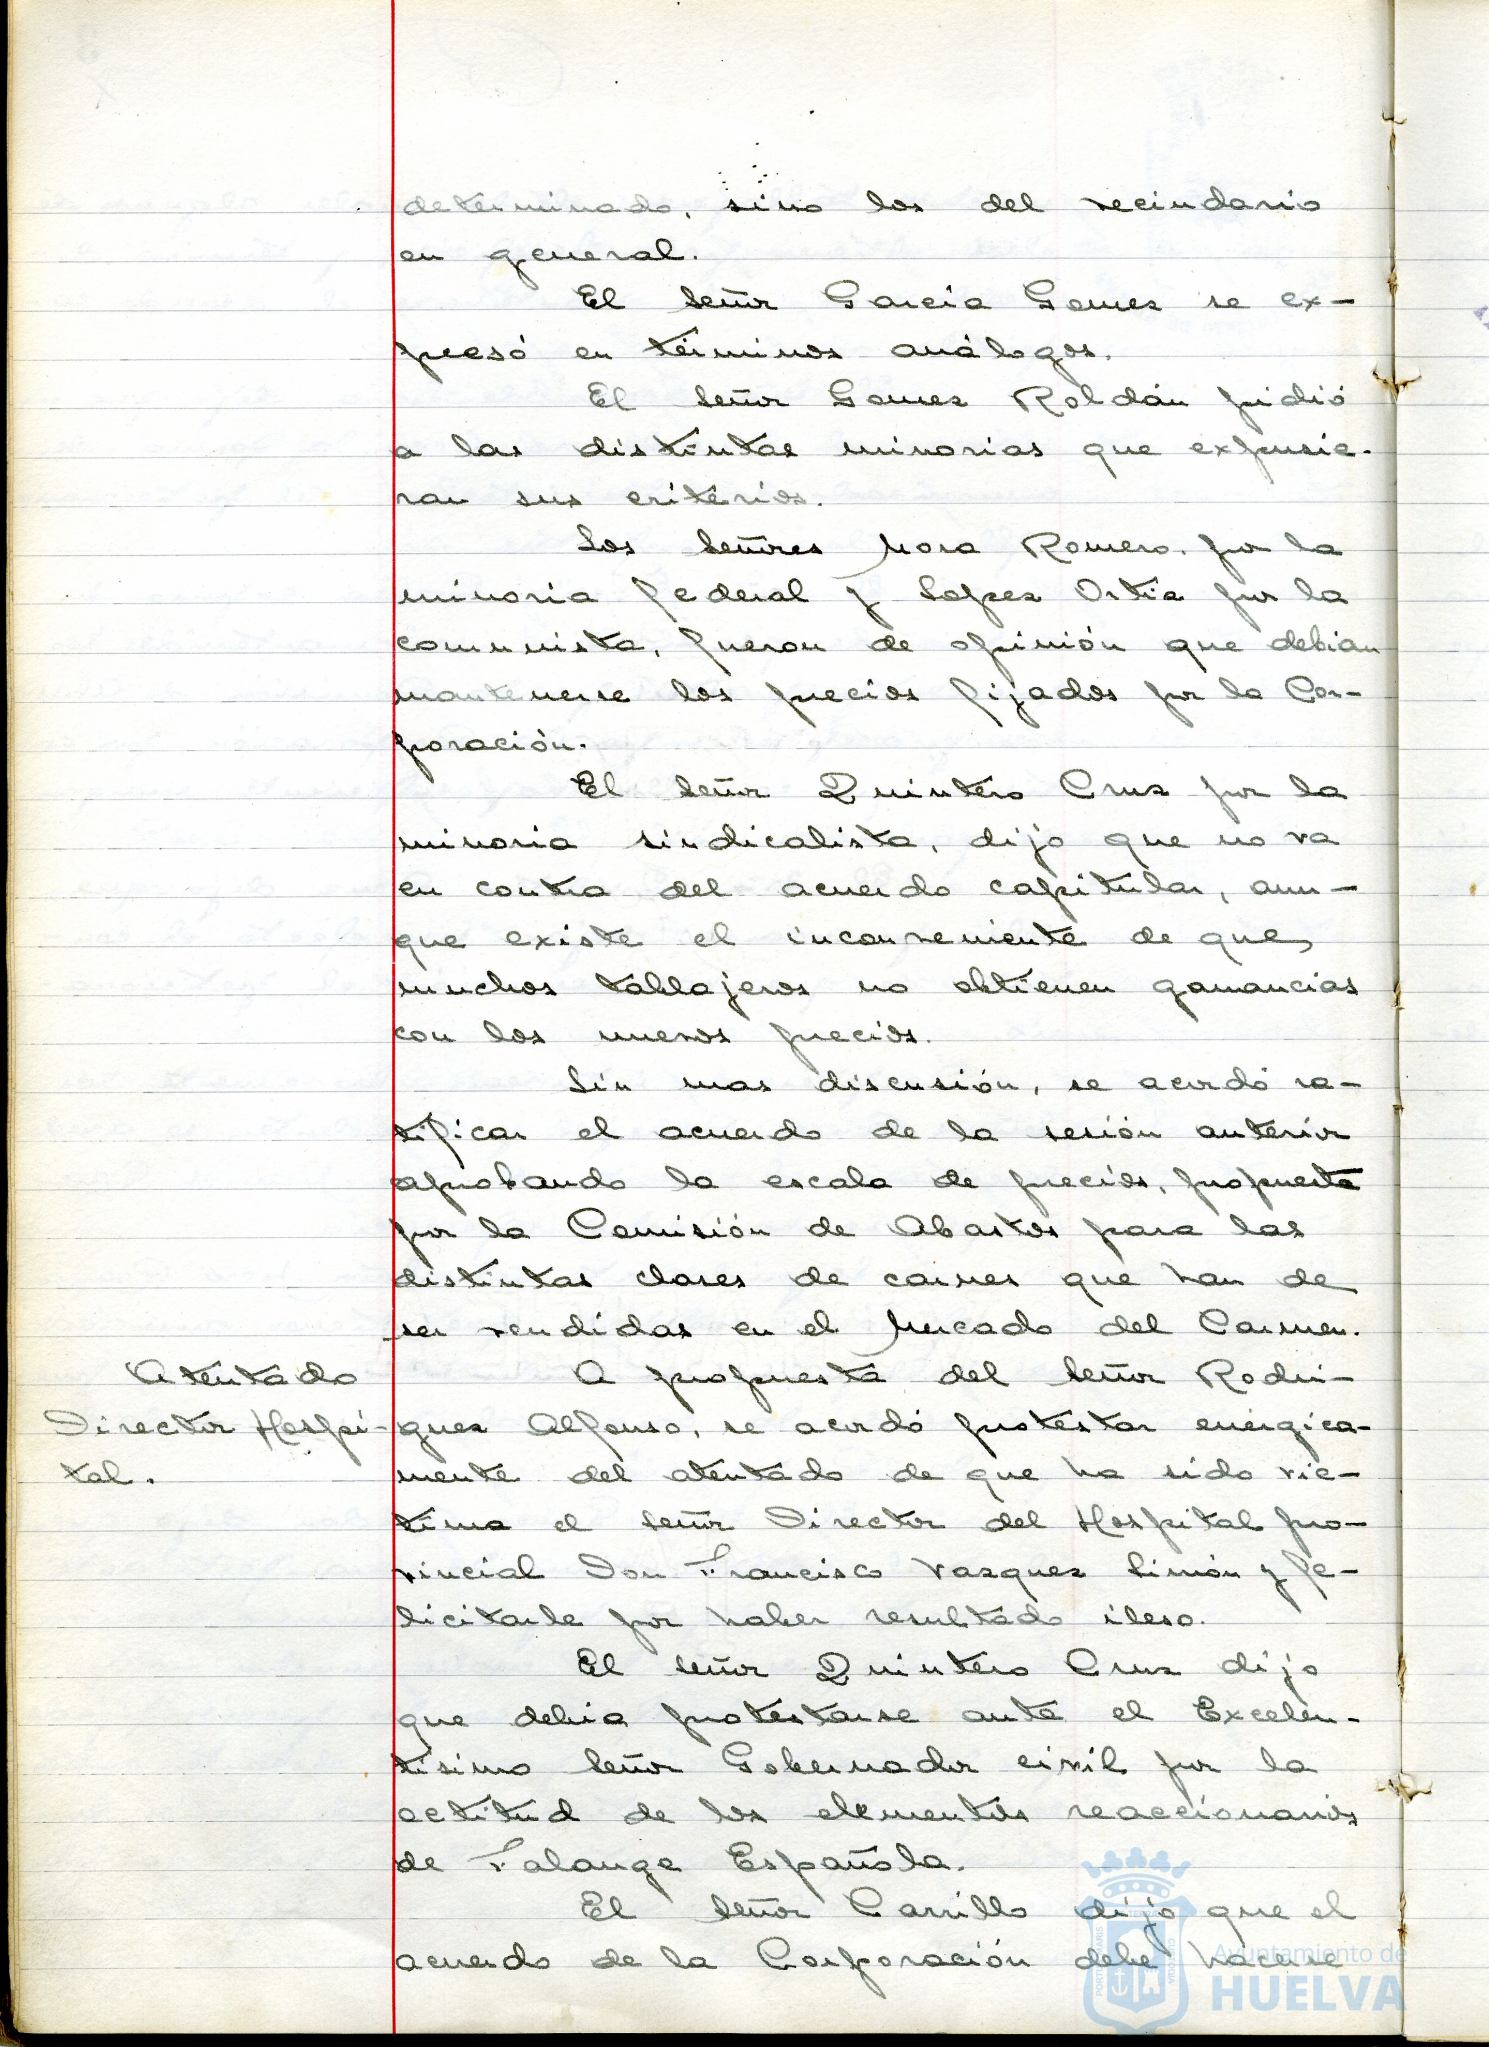 determinado, sino los del vecindario
en general.
El Señor Garcia Gomez se ex-
presó en términos análogos.
El Señor Gomez Roldán pidió
a las distintas minorias que expusie-
ran sus critérios.
Los Señores Mora Romero, por la
minoria federal y Lopez Ortiz por la
comunista, fueron de opinión que debian
mantenerse los precios fijados por la Cor-
poración.
El Señor Quintero Cruz por la
minoria sindicalista, dijo que no va
en contra del acuerdo capitular, aun-
que existe el inconveniente de que
muchos tablajeros no obtienen ganancias
con los nuevos precios.
Sin mas discusión, se acordó ra-
tificar el acuerdo de la sesión anterior
aprobando la escala de precios, propuesta
por la Comisión de Abastos para las
distintas clases de carnes que han de
ser vendidas en el Mercado del Carmen.
Atentado
Director Hospi-
tal.
A propuesta del Señor Rodri-
guez Alfonso, se acordó protestar enérgica-
mente del atentado de que ha sido vic-
tima el señor Director del Hospital pro-
vincial Don Francisco Vazquez Limón y fe-
licitarle por haber resultado ileso.
El Señor Quintero Cruz dijo
que debia protestarse ante el Excelen-
tisimo Señor Gobernador civil por la
actitud de los elementos reaccionarios
de Falange Española.
El Señor Carrillo dijo que el
acuerdo de la Corporación debe hacerse
Ayuntamiento de
HUELVA